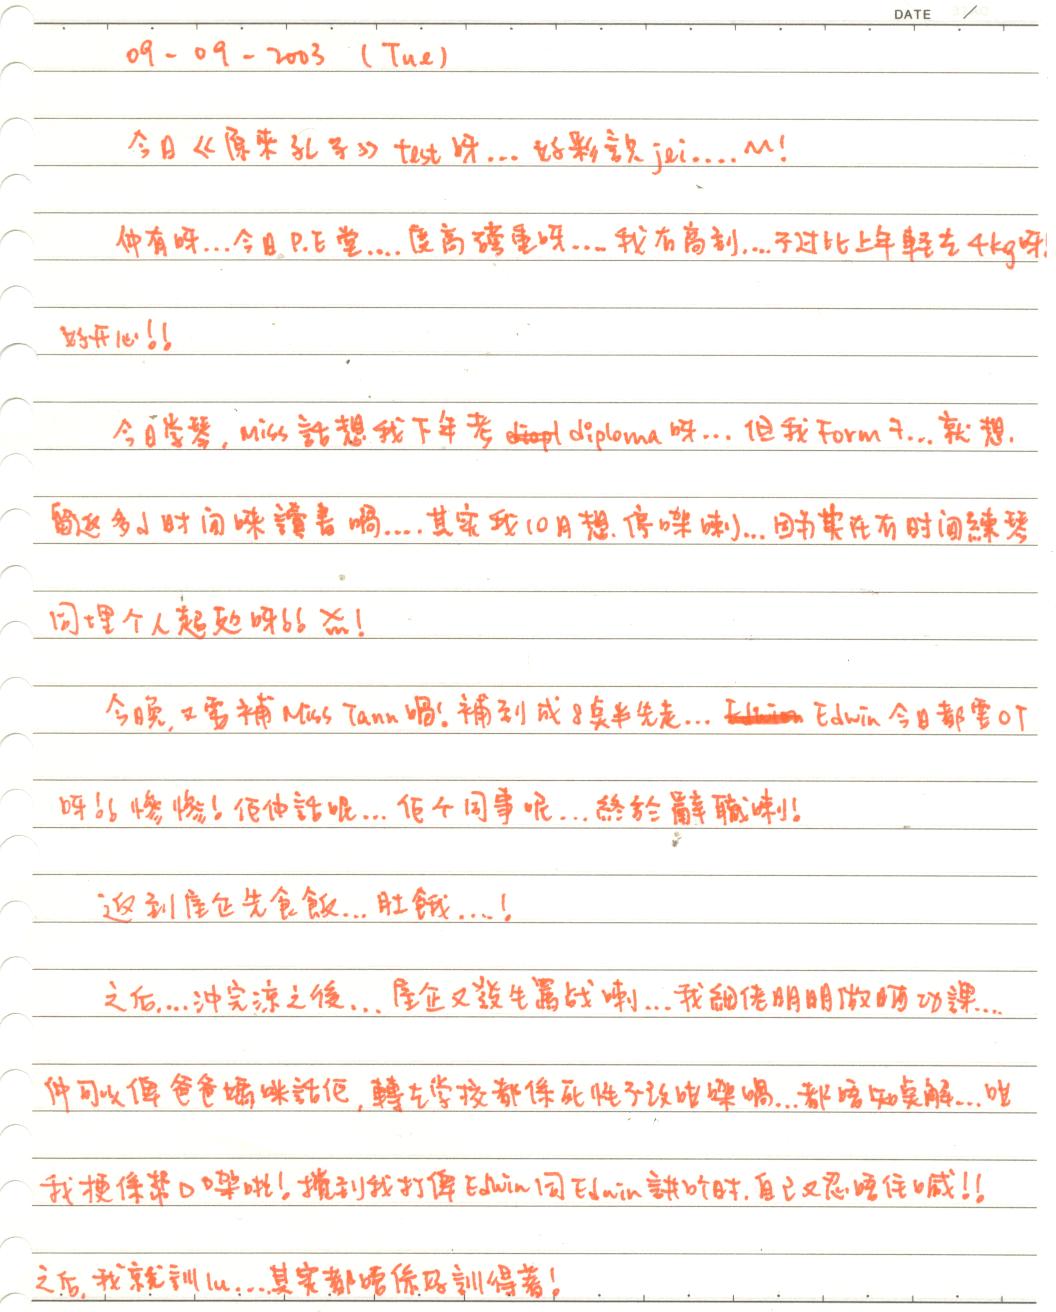 DATE /
09-09-2003 (Tue)
今日《原來孔子》test呀... 好彩識jei.... ^^!
仲有呀...今日P.E堂....度高磅重呀....我冇高到....不过比上年輕左4kg呀!
好开心!!
今日学琴, Miss話想我下年考 diploma呀... 但我Form 7...就想.
留返多d时间嚟讀書喎....其实我10月想停㗎喇)...因為实在冇时间練琴
同埋个人起
今晚,又要補Miss Tann喎! 補到成8点半先走... Edwin今日都要OT
呀!! 慘慘! 佢仲話呢... 佢个同事呢...終於辭職喇!
返到屋企先食飯...肚餓...!
之后....沖完涼之後... 屋企又發生罵战喇...我細佬明明做晒功課....
仲可以俾爸爸媽咪話佢,轉左学校都係死性不改咁㗎喎...都唔知点解...咁
我梗係幫D㗎啦! 攪到我打俾Edwin同Edwin講吓时.自己又忍唔住喊!!
之后,我就訓lu....其实都唔係好訓得著!